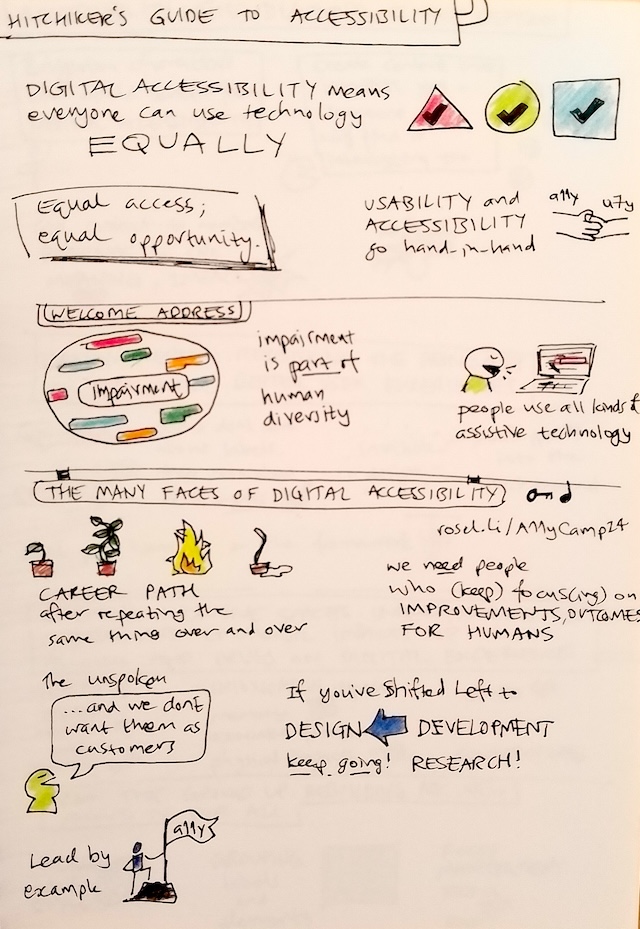 HITCHIKER'S GUIDE TO ACCESSIBILITY
DIGITAL ACCESSIBILITY means
everyone can use technology
EQUALLY
Equal access;
equal opportunity.
USABILITY and
ACCESSIBILITY
go hand-in-hand
a11y u7y
WELCOME ADDRESS
impairment
impairment
is part of
human
diversity
people use all kinds of
assistive technology
THE MANY FACES OF DIGITAL ACCESSIBILITY
rosel.li/A11yCamp24
CAREER PATH
after repeating the
same thing over and over
we need people
who (keep) focus(ing) on
IMPROVEMENTS, OUTCOMES
FOR HUMANS
The unspoken
...and we dont
want them as
customers
If you've shifted left to
DESIGN DEVELOPMENT
keep going! RESEARCH!
Lead by
example
a11y